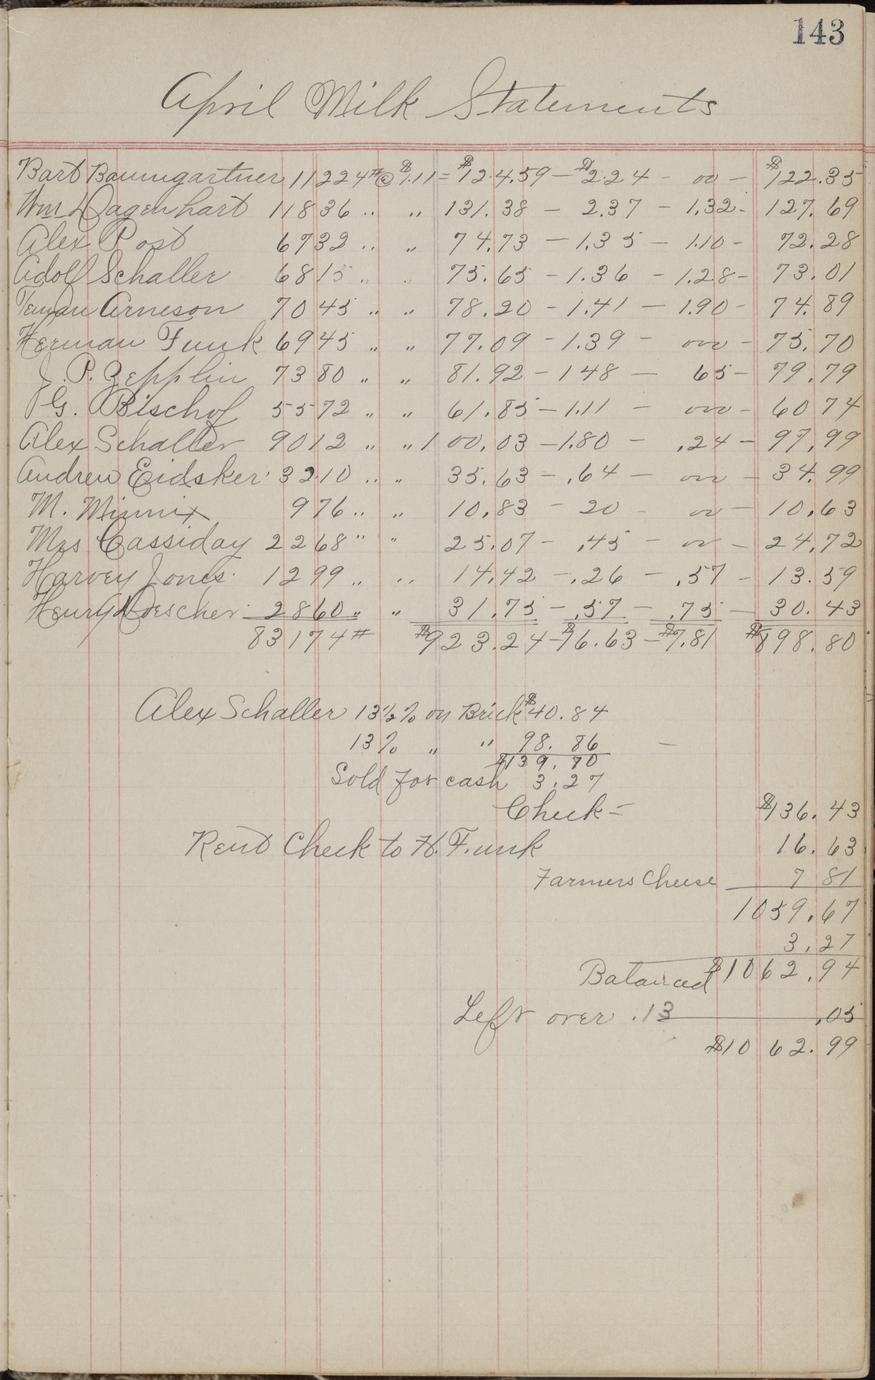 143
April Milk Statements
Bart Baumgartner 11224# @ $1.11 = $124.59 — $2.24 - oo — $122.35
Wm Dagenhart 11836 .. „ 131.38 — 2.37 — 1.32 - 127.69
Alex Post 6732 .. „ 74.73 — 1.35 — 1.10 - 72.28
Adolf Schaller 6815 .. „ 75.65 — 1.36 — 1.28 - 73.01
Arneson 7045 .. „ 78.20 — 1.41 — 1.90 - 74.89
Herman Funk 6945 „ „ 77.09 — 1.39 — ooo — 75.70
J. P. Zepplin 7380 „ „ 81.92 — 148 — 65 - 79.79
G. Bischof 5572 „ „ 61.85 — 1.11 — ooo — 60 74
Alex Schaller 9012 „ „ 100.03 — 1.80 — .24 — 97.99
Andrew Eidsker 3210 .. „ 35.63 — .64 — ooo — 34.99
M. 976 .. „ 10.83 — 20 - oo — 10.63
Mrs Cassiday 2268 " " 25.07 — .45 — oo — 24.72
Harvey Jones 1299 „ .. 14.42 — .26 — .57 - 13.59
Henry Loescher 2860 „ „ 31.75 — .57 — .75 — 30.43
83174# $923.24 — 16.63 — $7.81 $898.80
Alex Schaller 13½% on Brick $40.84
13% „ " 98.86 —
$139.70
Sold for cash 3.27
Check = $136.43
Rent Check to H. Funk 16.63
Farmers Cheese 7 81
1059.67
3.27
Balanced $1062.94
Left over .13 .05
$1062.99